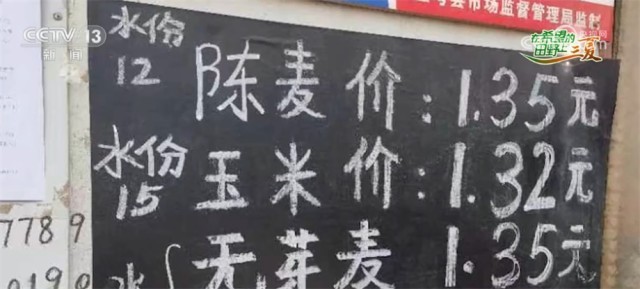 CCTV 13
新闻
县市场监督管理局监制
在希望的
田野上 三夏
水份
12
陈麦价:1.35元
水份
15
玉米价:1.32元
7789
无芽麦1.35元
水